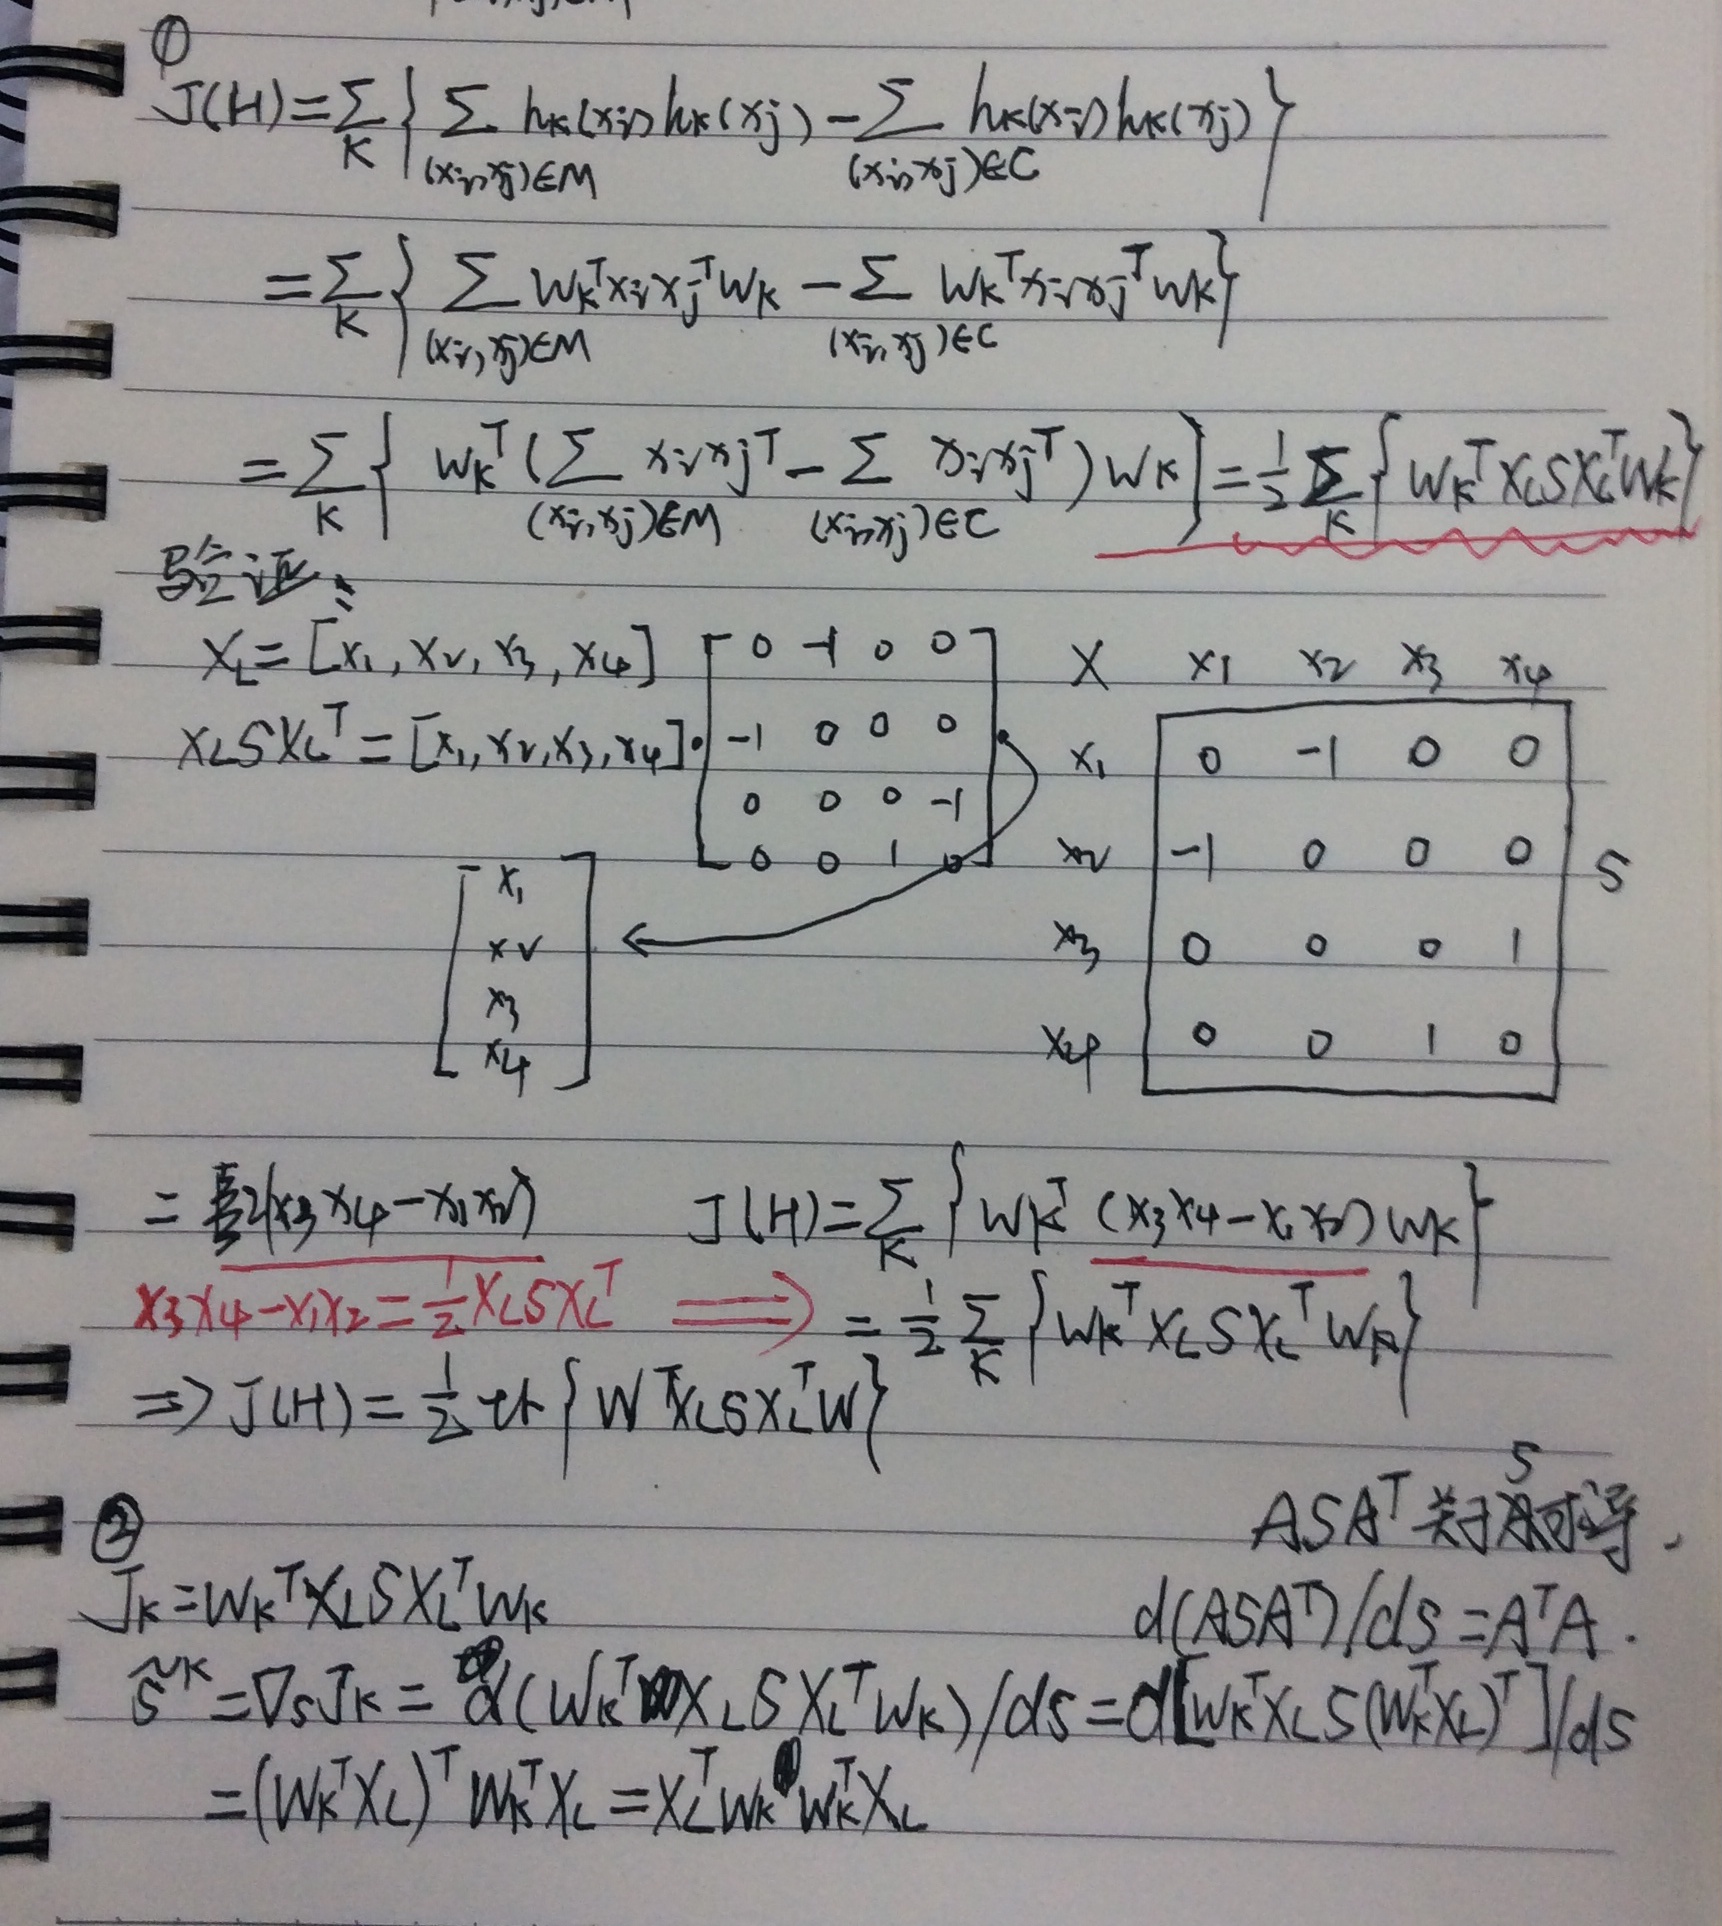 ①
J(H)=∑_K{∑_{(xi,xj)∈M} hk(xi)hk(xj)-∑_{(xi,xj)∈C} hk(xi)hk(xj)}
=∑_K{∑_{(xi,xj)∈M} WK^T xi xj^T WK-∑_{(xi,xj)∈C} WK^T xi xj^T WK}
=∑_K{WK^T(∑_{(xi,xj)∈M} xi xj^T-∑_{(xi,xj)∈C} xi xj^T)WK}=1/2 ∑_K{WK^T XL S XL^T WK}
验证:
XL=[x1,x2,x3,x4]
XLSXL^T=[x1,x2,x3,x4]·
0 -1 0 0
-1 0 0 0
0 0 0 -1
0 0 1 0
x1
x2
x3
x4
X x1 x2 x3 x4
x1 0 -1 0 0
x2 -1 0 0 0 S
x3 0 0 0 1
x4 0 0 1 0
=2(x3x4-x1x2) J(H)=∑_K{WK^T(x3x4-x1x2)WK}
x3x4-x1x2=1/2 XLSXL^T ⟹ =1/2 ∑_K{WK^T XL S XL^T WK}
⇒J(H)=1/2 tr{W^T XL S XL^T W}
ASA^T 关于S可导.
②
JK=WK^T XL S XL^T WK d(ASA^T)/ds=A^TA.
S̃^K=∇sJK=d(WK^T XL S XL^T WK)/ds=d[WK^T XL S(WK^T XL)^T]/ds
=(WK^T XL)^T WK^T XL=XL^T WK WK^T XL